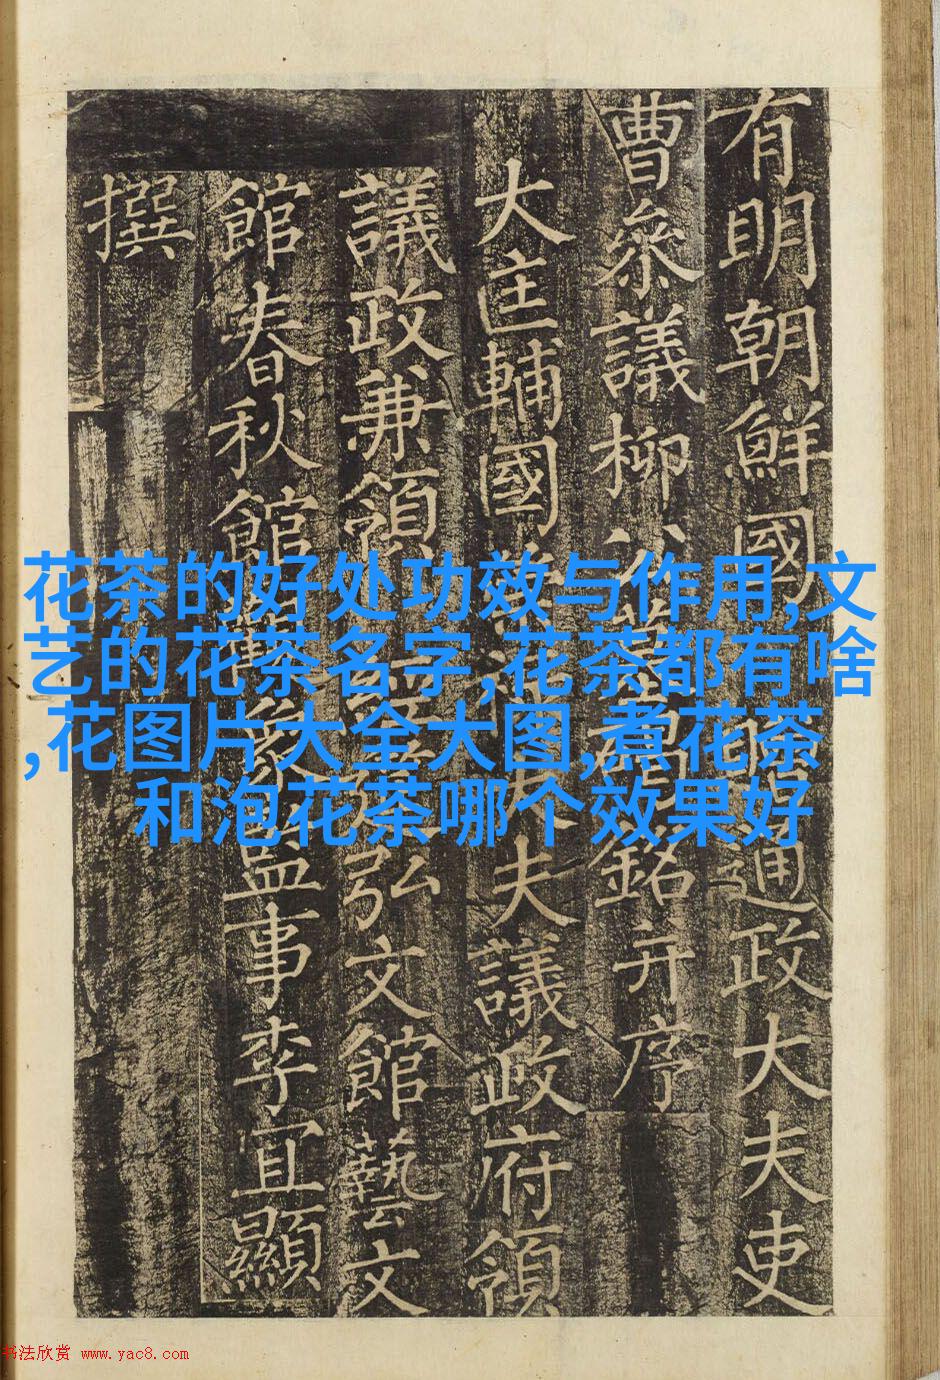 有明朝鮮國贈通政大夫吏
曹叅議柳公墓碣銘并序
大匡輔國崇祿大夫議政府領
議政兼領經筵弘文館藝文
館春秋館觀象監事李宜顯
撰
花茶的好处功效与作用,文
艺的花茶名字,花茶都有啥
,花图片大全大图,煮花茶
和泡花茶哪个效果好
书法欣赏 www.yac8.com